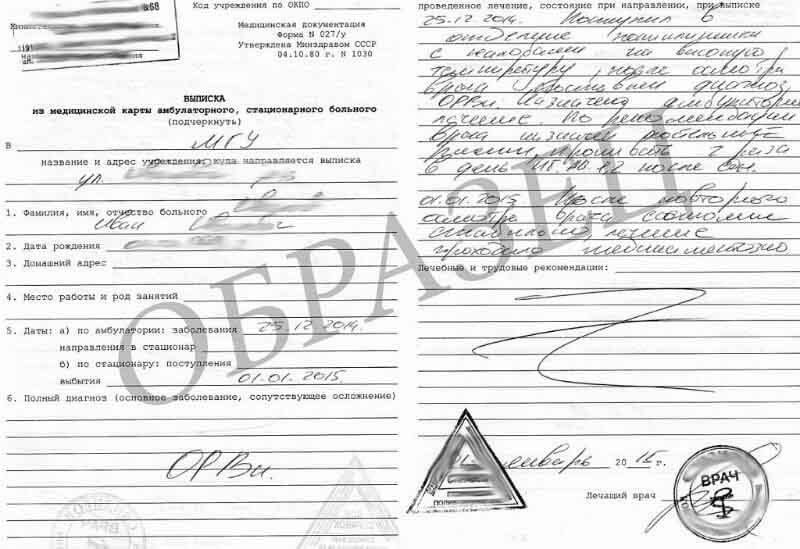 Код учреждения по ОКПО
Медицинская документация
Форма N 027/у
Утверждена Минздравом СССР
04.10.80 г. N 1030
ВЫПИСКА
из медицинской карты амбулаторного, стационарного больного
(подчеркнуть)
В МГУ
название и адрес учреждения, куда направляется выписка
ул.
1. Фамилия, имя, отчество больного
Иван
2. Дата рождения
3. Домашний адрес
4. Место работы и род занятий
5. Даты: а) по амбулатории: заболевания 25.12.2014.
направления в стационар
б) по стационару: поступления
выбытия 01.01.2015.
6. Полный диагноз (основное заболевание, сопутствующее осложнение)
ОРВи.
проведенное лечение, состояние при направлении, при выписке
25.12.2014. Поступил в
отделение поликлиники
с жалобами на высокую
температуру, после осмотра
врача поставили диагноз
ОРВи. Назначено амбулаторн
лечение. По рекомендации
врача назначен
2 раза
в день после
01.01.2015 После повторного
осмотра врача состояние
лечение
проходило медикаментозно
Лечебные и трудовые рекомендации:
01 январь 2015 г.
Лечащий врач
ВРАЧ
ОБРАЗЕЦ